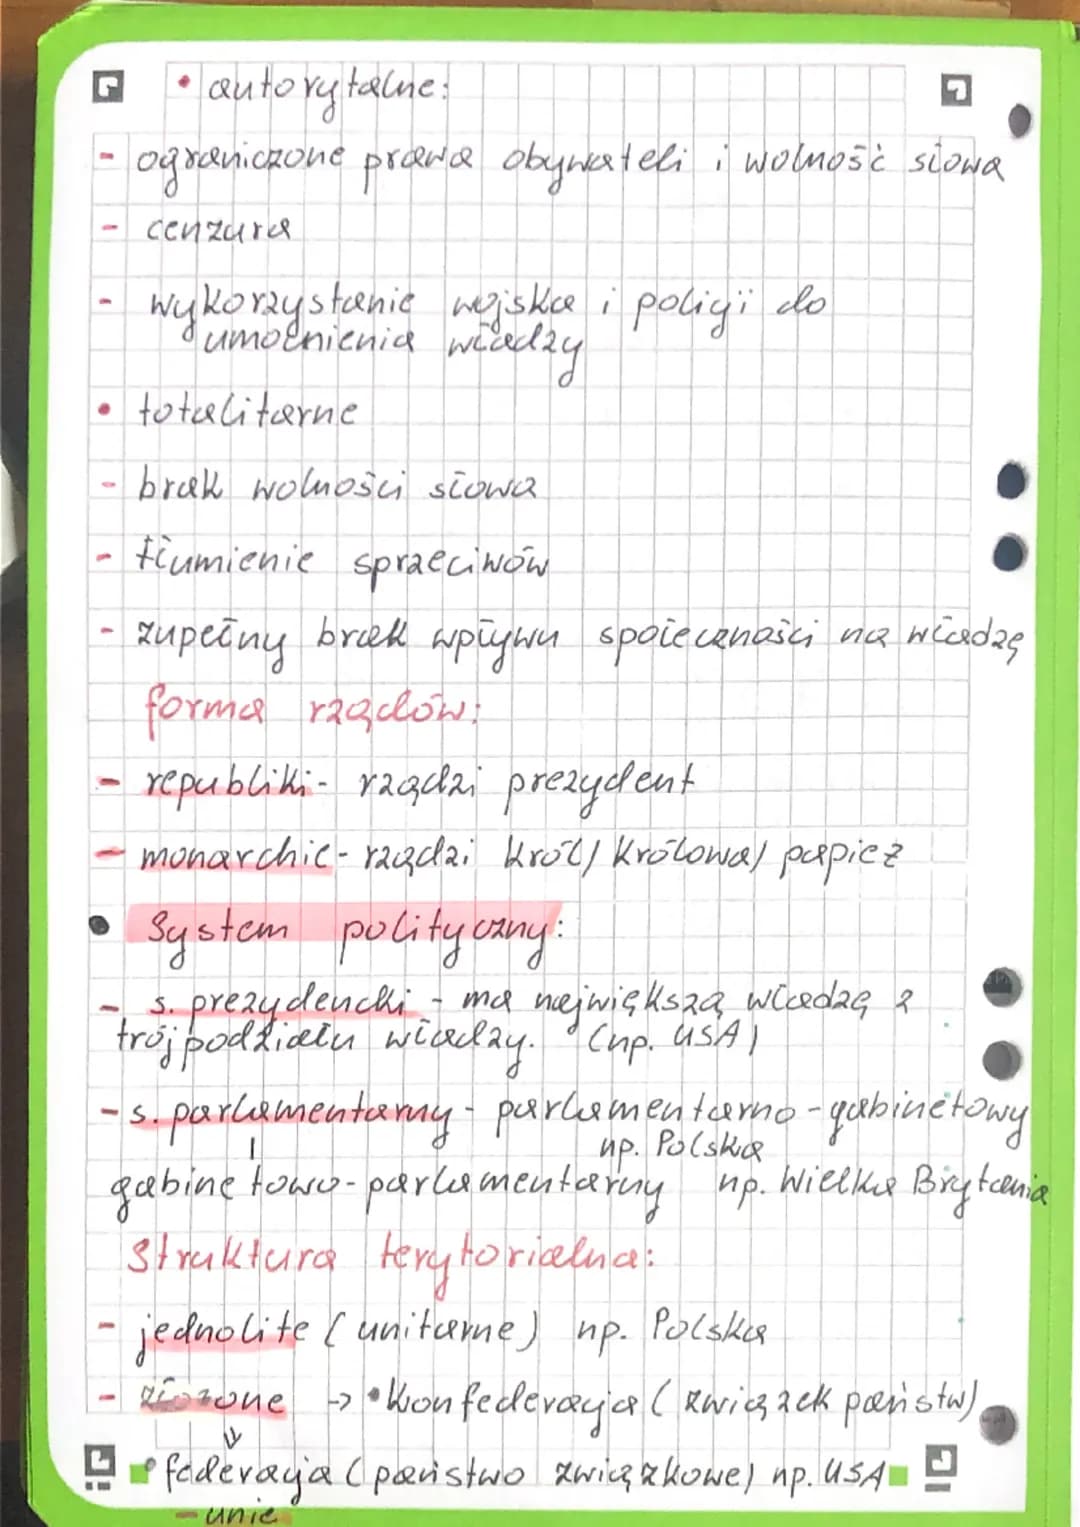 • autorytalne:
- ograniczone prawa obywateli i wolność słowa
- cenzura
- wykorzystanie wojska i policji do
umocnienia władzy
• totalitarne
- brak wolności słowa
- tłumienie sprzeciwów
- zupełny brak wpływu społeczności na władzę
forma rządów:
- republiki - rządzi prezydent
- monarchie - rządzi król/ królowa/ papież
• System polityczny:
- s. prezydencki - ma największą władzę z
trójpodziału władzy. (np. USA)
- s. parlamentarny - parlamentarno-gabinetowy
np. Polska
gabinetowo-parlamentarny np. Wielka Brytania
Struktura terytorialna:
- jednolite (unitarne) np. Polska
- złożone → • konfederacja (związek państw)
• federacja (państwo związkowe) np. USA
- unie